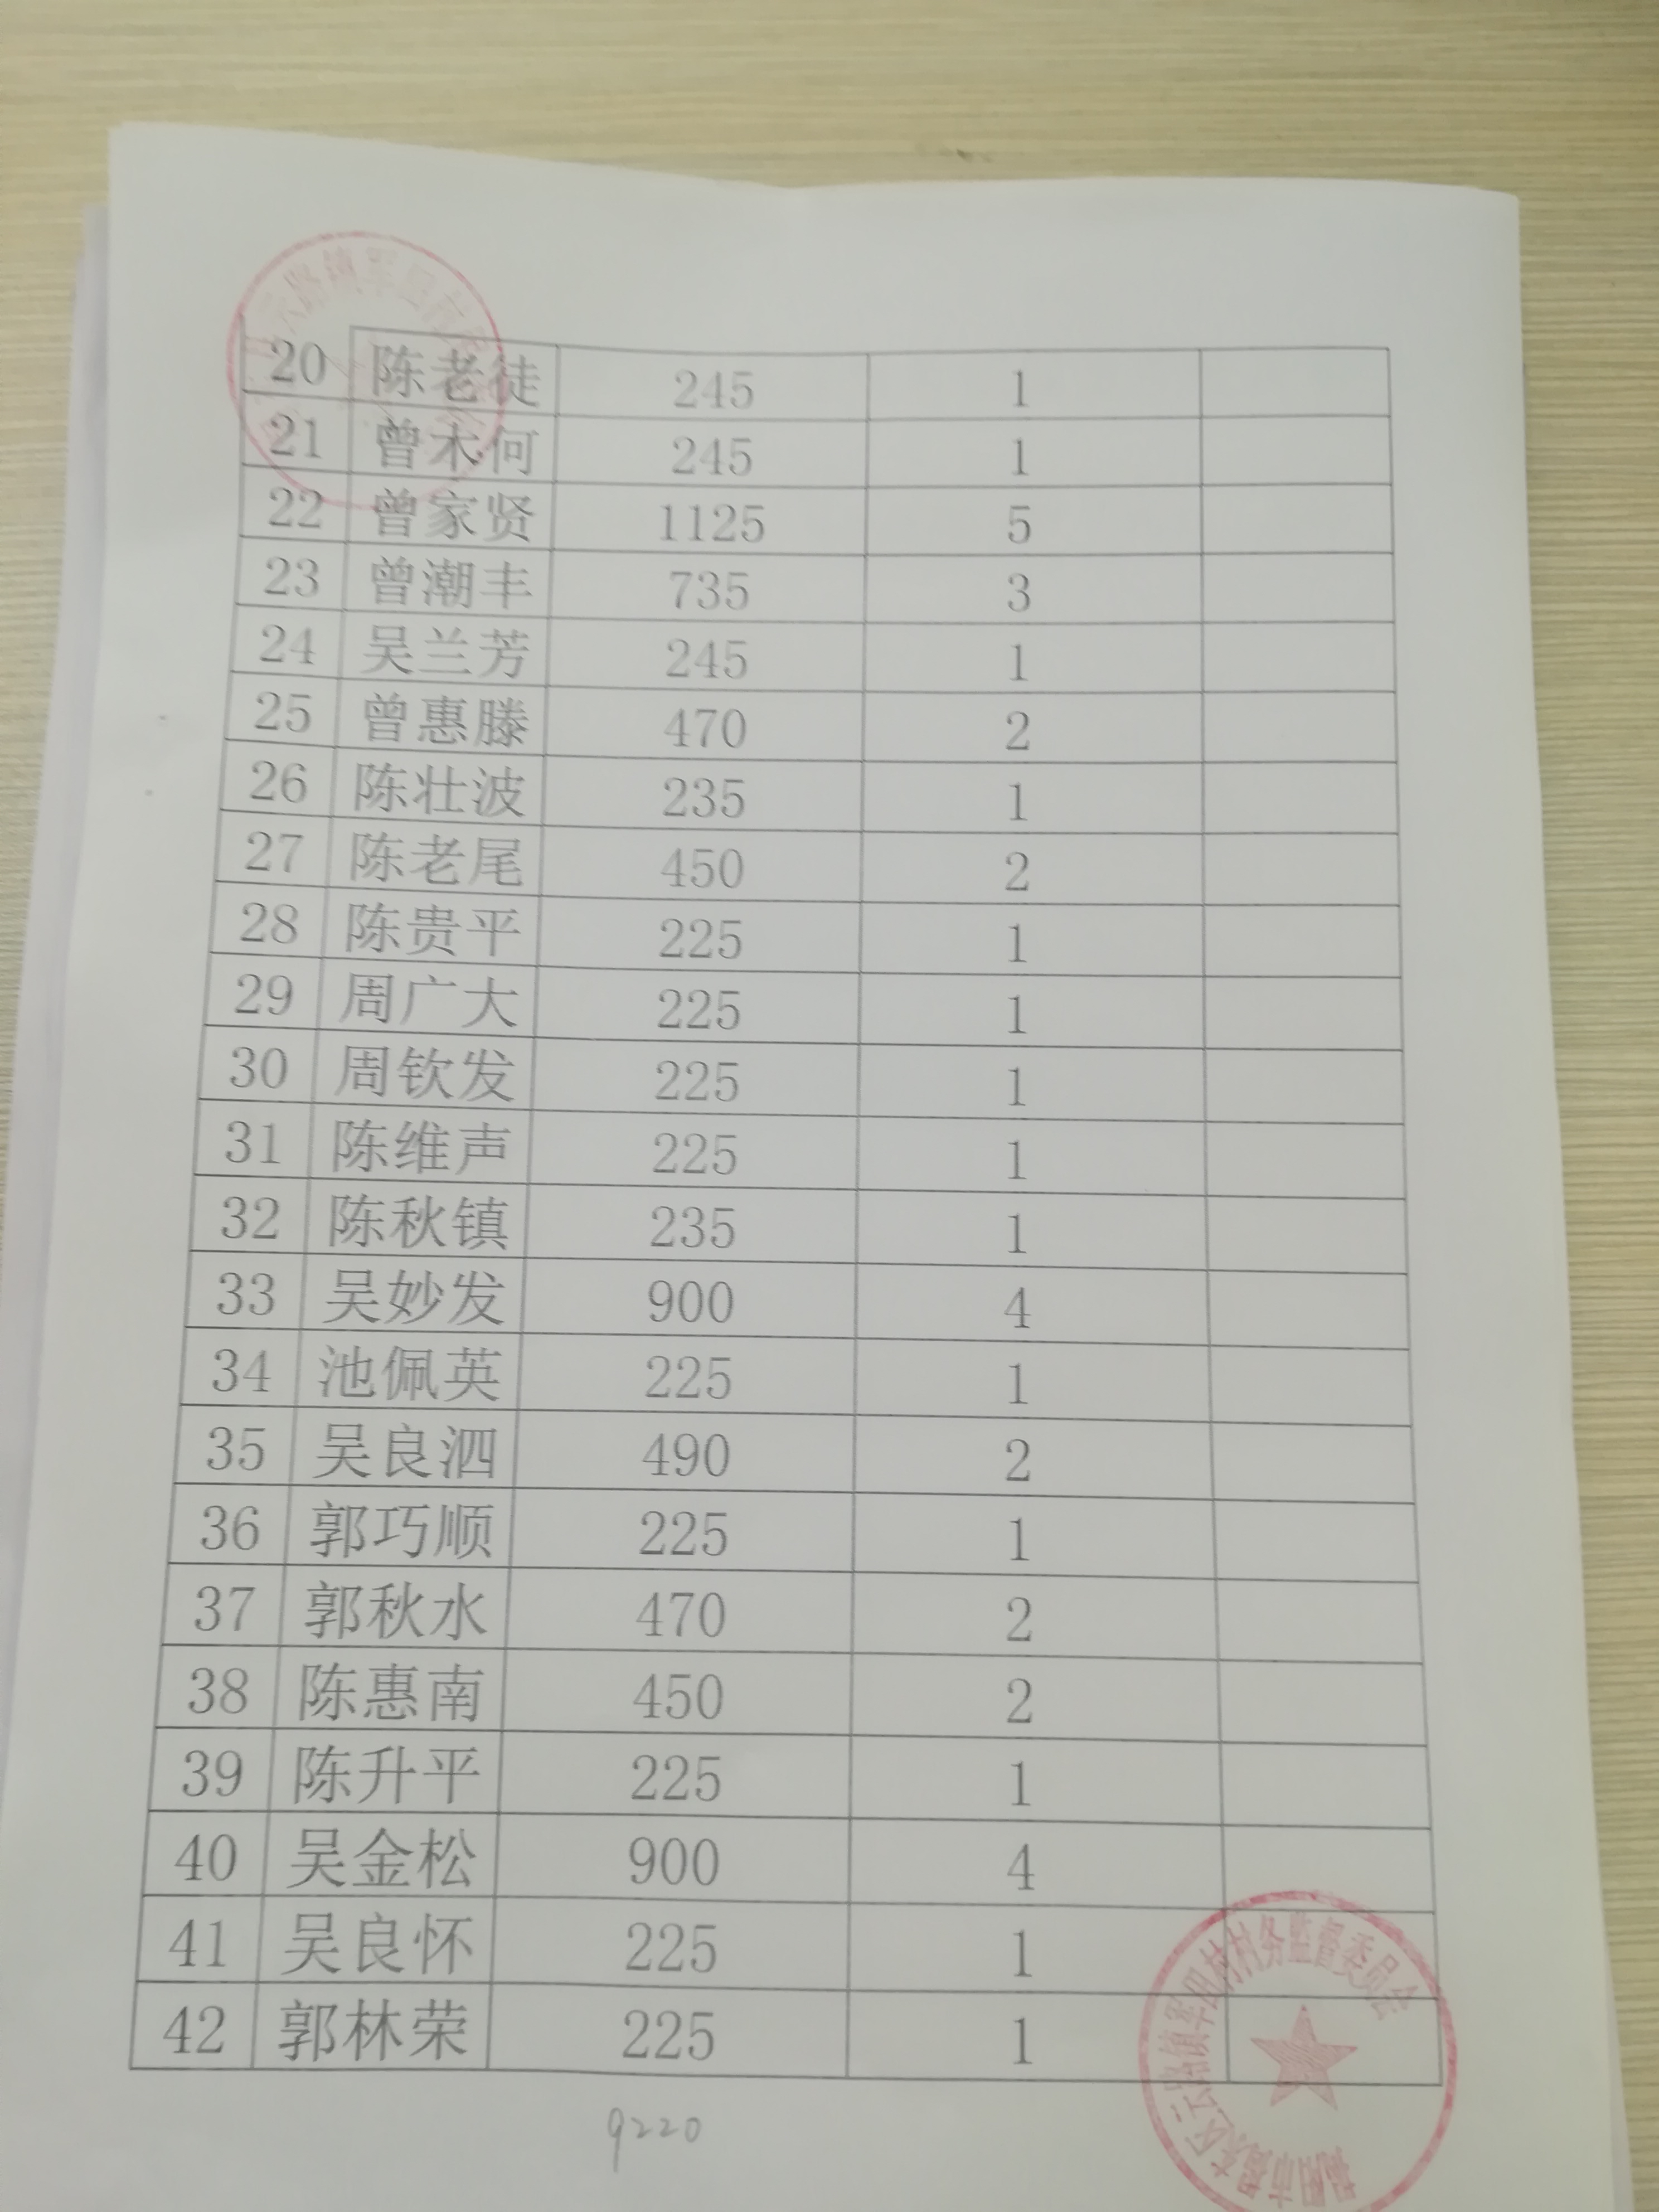 云路镇军田村
20 陈老徒 245 1
21 曾木何 245 1
22 曾家贤 1125 5
23 曾潮丰 735 3
24 吴兰芳 245 1
25 曾惠滕 470 2
26 陈壮波 235 1
27 陈老尾 450 2
28 陈贵平 225 1
29 周广大 225 1
30 周钦发 225 1
31 陈维声 225 1
32 陈秋镇 235 1
33 吴妙发 900 4
34 池佩英 225 1
35 吴良泗 490 2
36 郭巧顺 225 1
37 郭秋水 470 2
38 陈惠南 450 2
39 陈升平 225 1
40 吴金松 900 4
41 吴良怀 225 1
42 郭林荣 225 1
揭阳市揭东区云路镇军田村村务监督委员会
9220